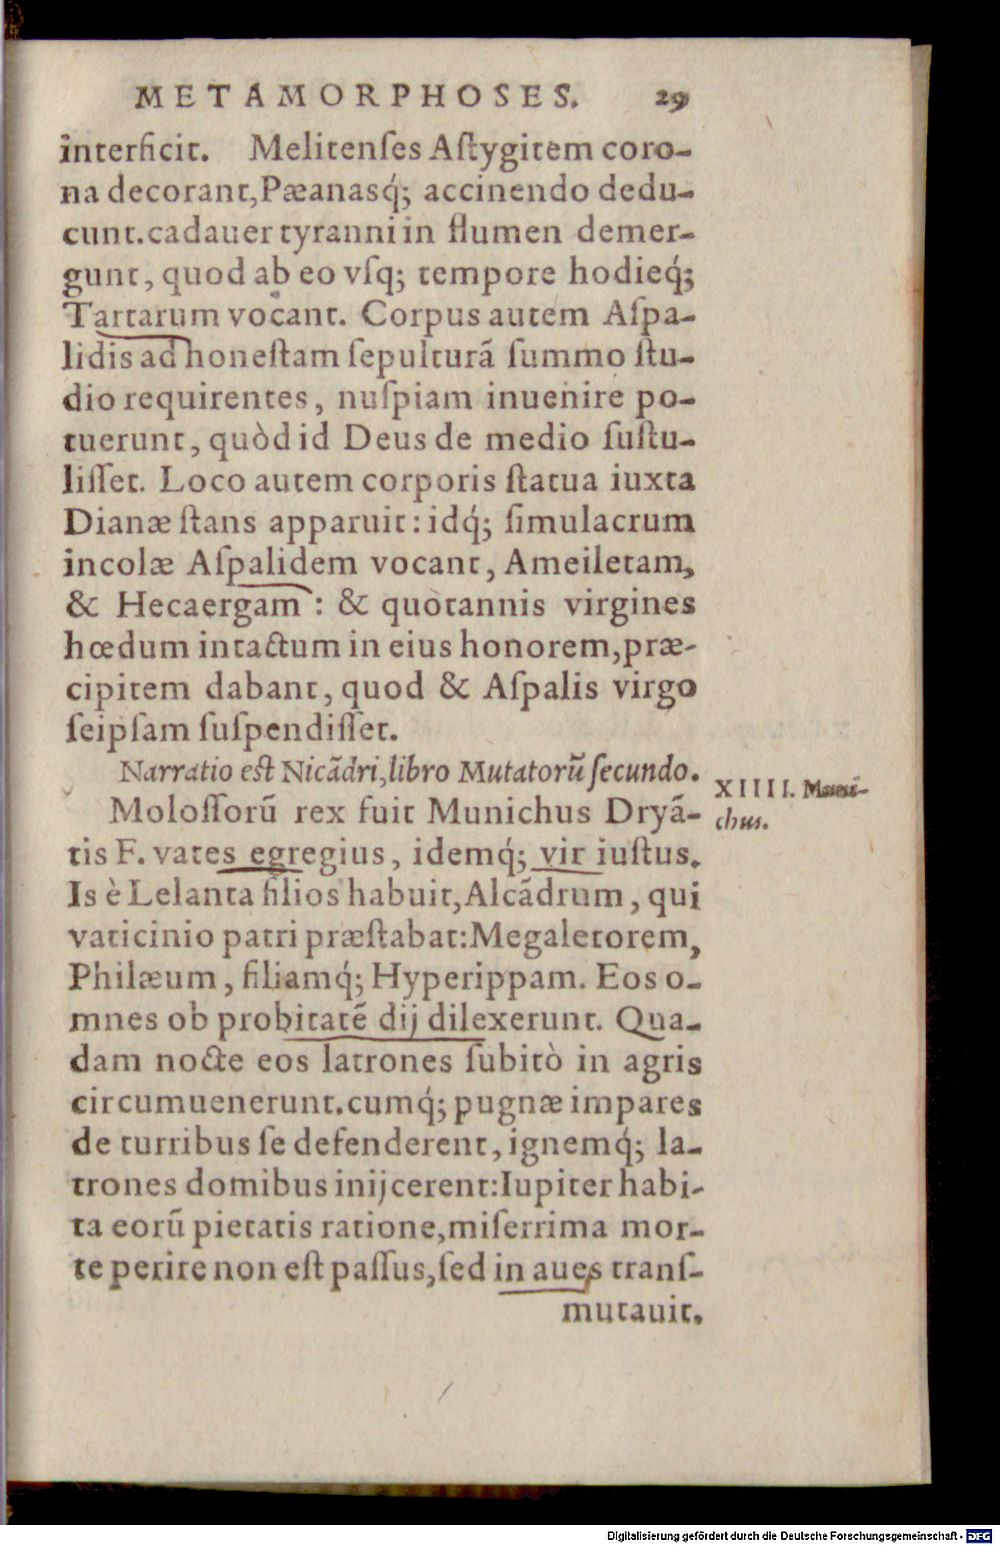 METAMORPHOSES. 29
interficit. Melitenſes Aſtygitem coro-
na decorant, Pæanasq́; accinendo dedu-
cunt. cadauer tyranni in flumen demer-
gunt, quod ab eo vſq; tempore hodieq́;
Tartarum vocant. Corpus autem Aſpa-
lidis ad honeſtam ſepulturã ſummo ſtu-
dio requirentes, nuſpiam inuenire po-
tuerunt, quòd id Deus de medio ſuſtu-
liſſet. Loco autem corporis ſtatua iuxta
Dianæ ſtans apparuit: idq́; ſimulacrum
incolæ Aſpalidem vocant, Ameiletam,
& Hecaergam: & quotannis virgines
hœdum intactum in eius honorem, præ-
cipitem dabant, quod & Aſpalis virgo
ſeipſam ſuſpendiſſet.
Narratio eſt Nicãdri, libro Mutatorũ ſecundo.
XIIII. Muni-
chus.
Moloſſorũ rex fuit Munichus Dryã-
tis F. vates egregius, idemq́; vir iuſtus.
Is è Lelanta filios habuit, Alcãdrum, qui
vaticinio patri præſtabat: Megaletorem,
Philæum, filiamq́; Hyperippam. Eos o-
mnes ob probitatẽ dij dilexerunt. Qua-
dam nocte eos latrones ſubitò in agris
circumuenerunt. cumq́; pugnæ impares
de turribus ſe defenderent, ignemq́; la-
trones domibus inijcerent: Iupiter habi-
ta eorũ pietatis ratione, miſerrima mor-
te perire non eſt paſſus, ſed in aues tranſ-
mutauit.
Digitalisierung gefördert durch die Deutsche Forschungsgemeinschaft - DFG